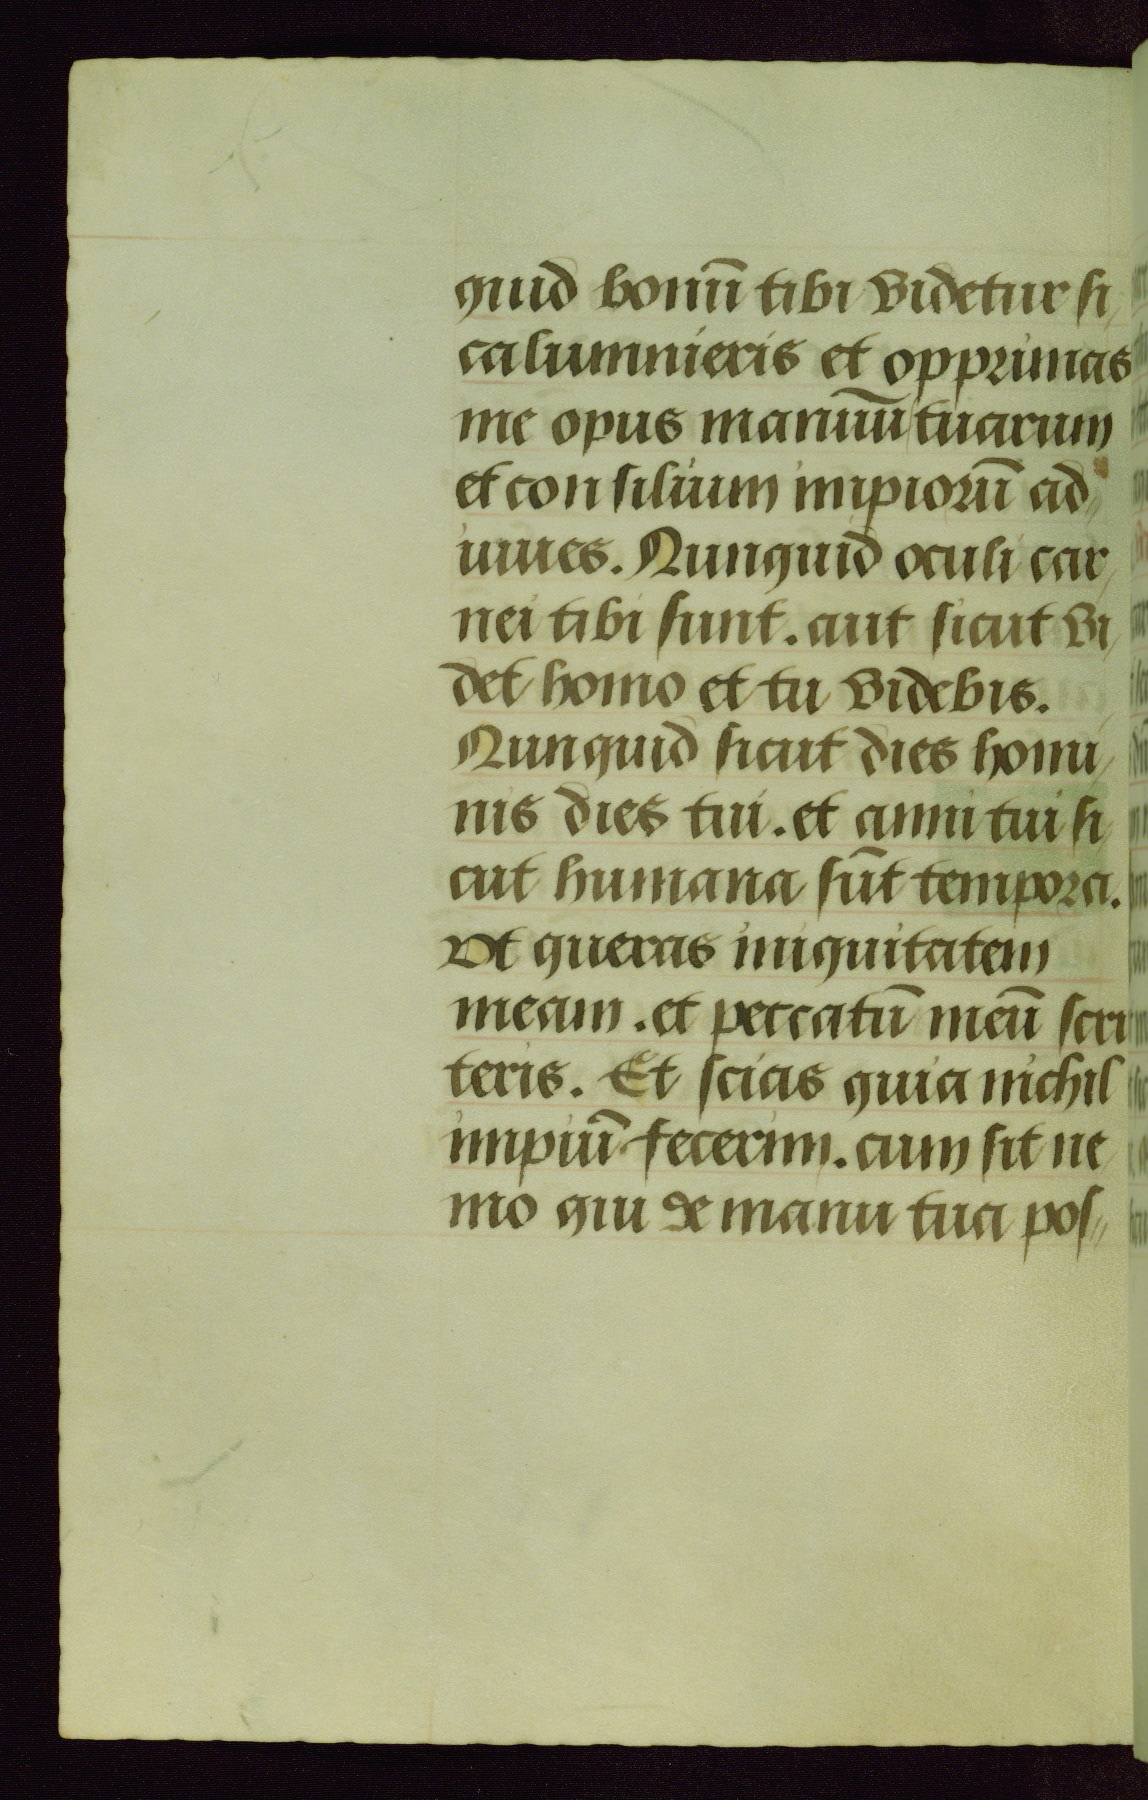 quid bonū tibi videtur si
calumnieris et opprimas
me opus manuū tuarum
et consilium impiorū ad
iuues. Nunquid oculi car
nei tibi sunt. aut sicut vi
det homo et tu videbis.
Nunquid sicut dies homi
nis dies tui. et anni tui si
cut humana sūt tempora.
Vt queras iniquitatem
meam. et peccatū meū scru
teris. Et scias quia nichil
impiū fecerim. cum sit ne
mo qui de manu tua pos